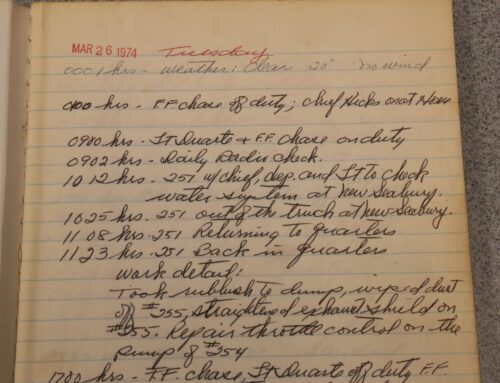 MAR 26 1974 Tuesday
0001 hrs - Weather: Clear 20° no wind
0100 hrs - F.F. Chase off duty; Chief Hicks on at Home
0900 hrs - Lt Duarte + F.F. Chase on duty
0902 hrs - Daily Radio check.
1012 hrs - 251 w/ chief, dep. and Lt to check
water system at New Seabury.
1025 hrs. 251 out of the truck at New Seabury.
1108 hrs. 251 Returning to quarters
1123 hrs. 251 Back in quarters
Work detail:
Took rubbush to dump, wiped dust
off #255, straightened exhaust shild on
#255. Repair throttle control on the
pump of #254
1700 hrs - F.F. Chase, Lt Duarte off duty F.F.